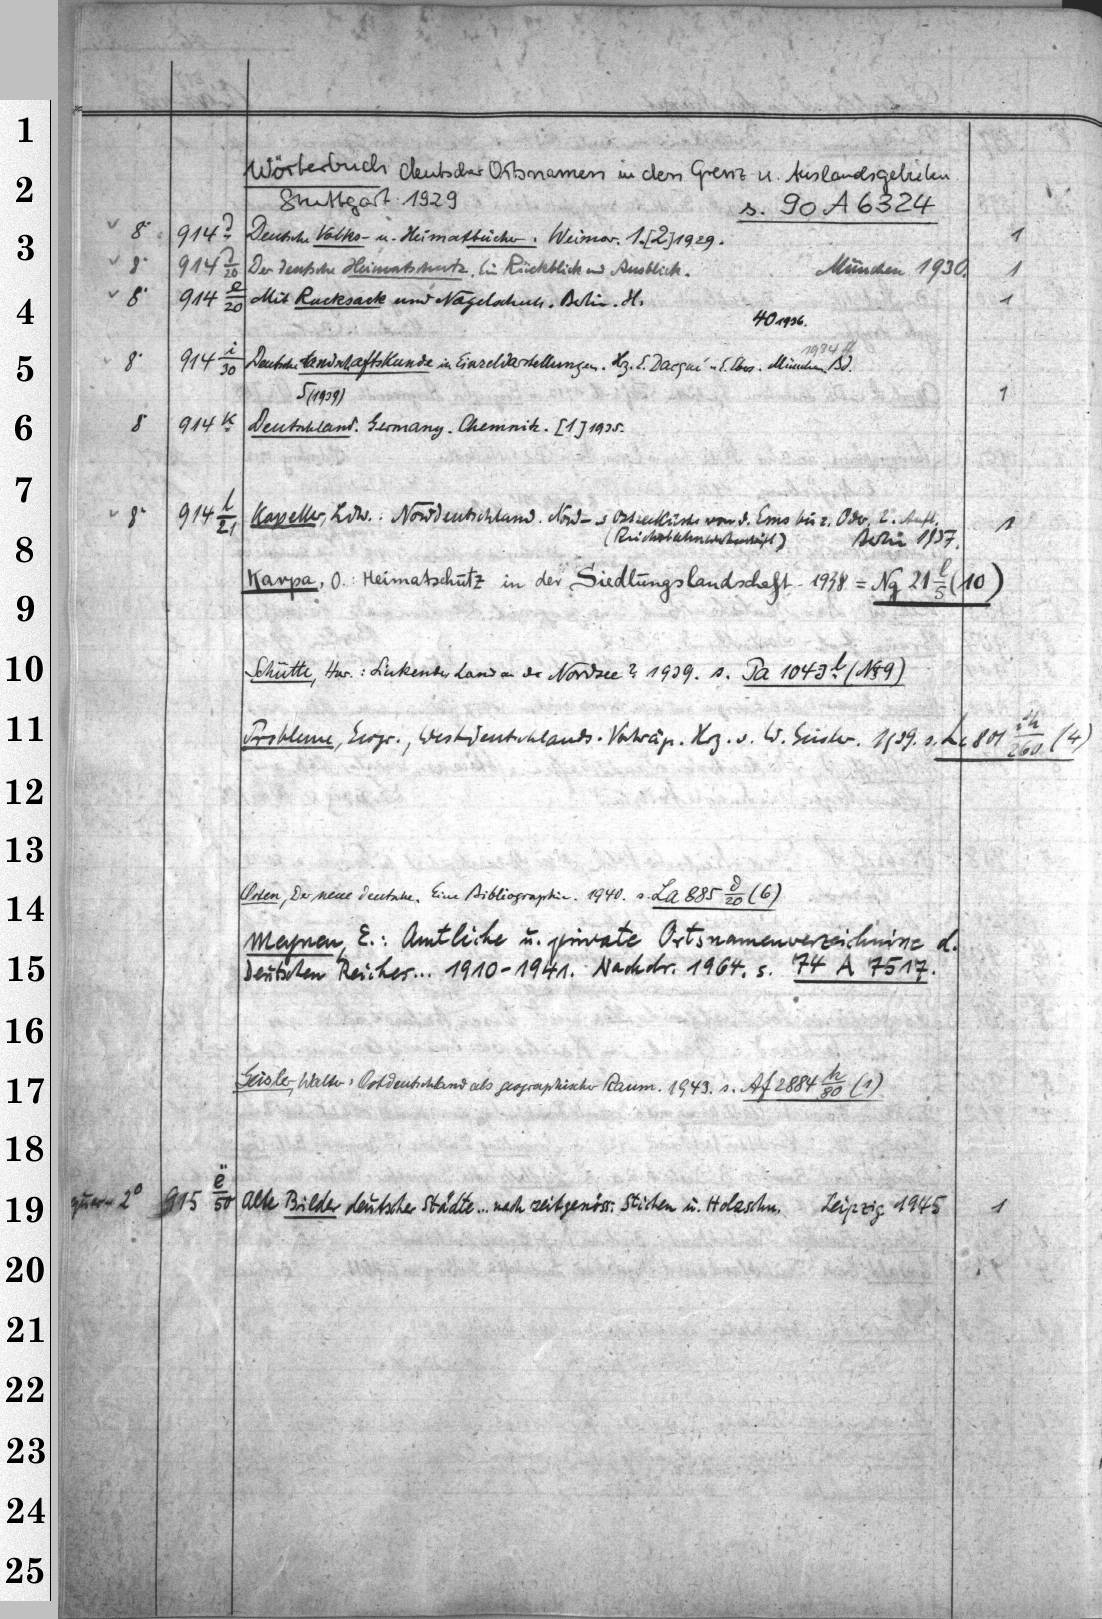 1
2
3
4
5
6
7
8
9
10
11
12
13
14
15
16
17
18
19
20
21
22
23
24
25
Wörterbuch deutscher Ortsnamen in den Grenz u. Auslandsgebieten.
Stuttgart 1929 s. 90 A 6324
8° 914 Deutsche Volks- u. Heimatbücher. Weimar. 1.[2] 1929. 1
8° 914 /20 Der deutsche Heimatschutz. Ein Rückblick und Ausblick. München 1930. 1
8° 914 e/20 Mit Rucksack und Nagelschuh. Berlin. H. 1
40 1936.
1934 ff
8° 914 i/30 Deutsche Landschaftskunde in Einzeldarstellungen. Hrg. E. Dacqué u. E. Ebers. München. Bd.
5 (1939) 1
8 914 k Deutschland. Germany. Chemnitz. [1] 1935.
8° 914 l/21 Kapeller, Ldw.: Norddeutschland. Nord- u Ostseeküste von d. Ems bis z. Oder. 2. Aufl. 1
Berlin 1937.
Karpa, O.: Heimatschutz in der Siedlungslandschaft - 1938 = Ng 21 l/5 (10)
Schütte, Hnr.: Sinkendes Land an der Nordsee? 1939. s. Pa 1043 l (N§9)
Probleme, Geogr., Westdeutschlands. Vorträge. Hrg. v. W. Geisler. 1939. s. La 801 /260 (4)
Osten, Der neue deutsche. Eine Bibliographie. 1940. s. La 885 d/20 (6)
Meynen, E.: Amtliche u. private Ortsnamenverzeichnisse d.
Deutschen Reiches... 1910-1941. Nachdr. 1964. s. 74 A 7517.
Geisler, Walter: Ostdeutschland als geographischer Raum. 1943. s. Af 2884 h/80 (1)
quer- 2° 915 ë/50 Alte Bilder deutscher Städte... nach zeitgenöss. Stichen u. Holzschn. Leipzig 1945 1